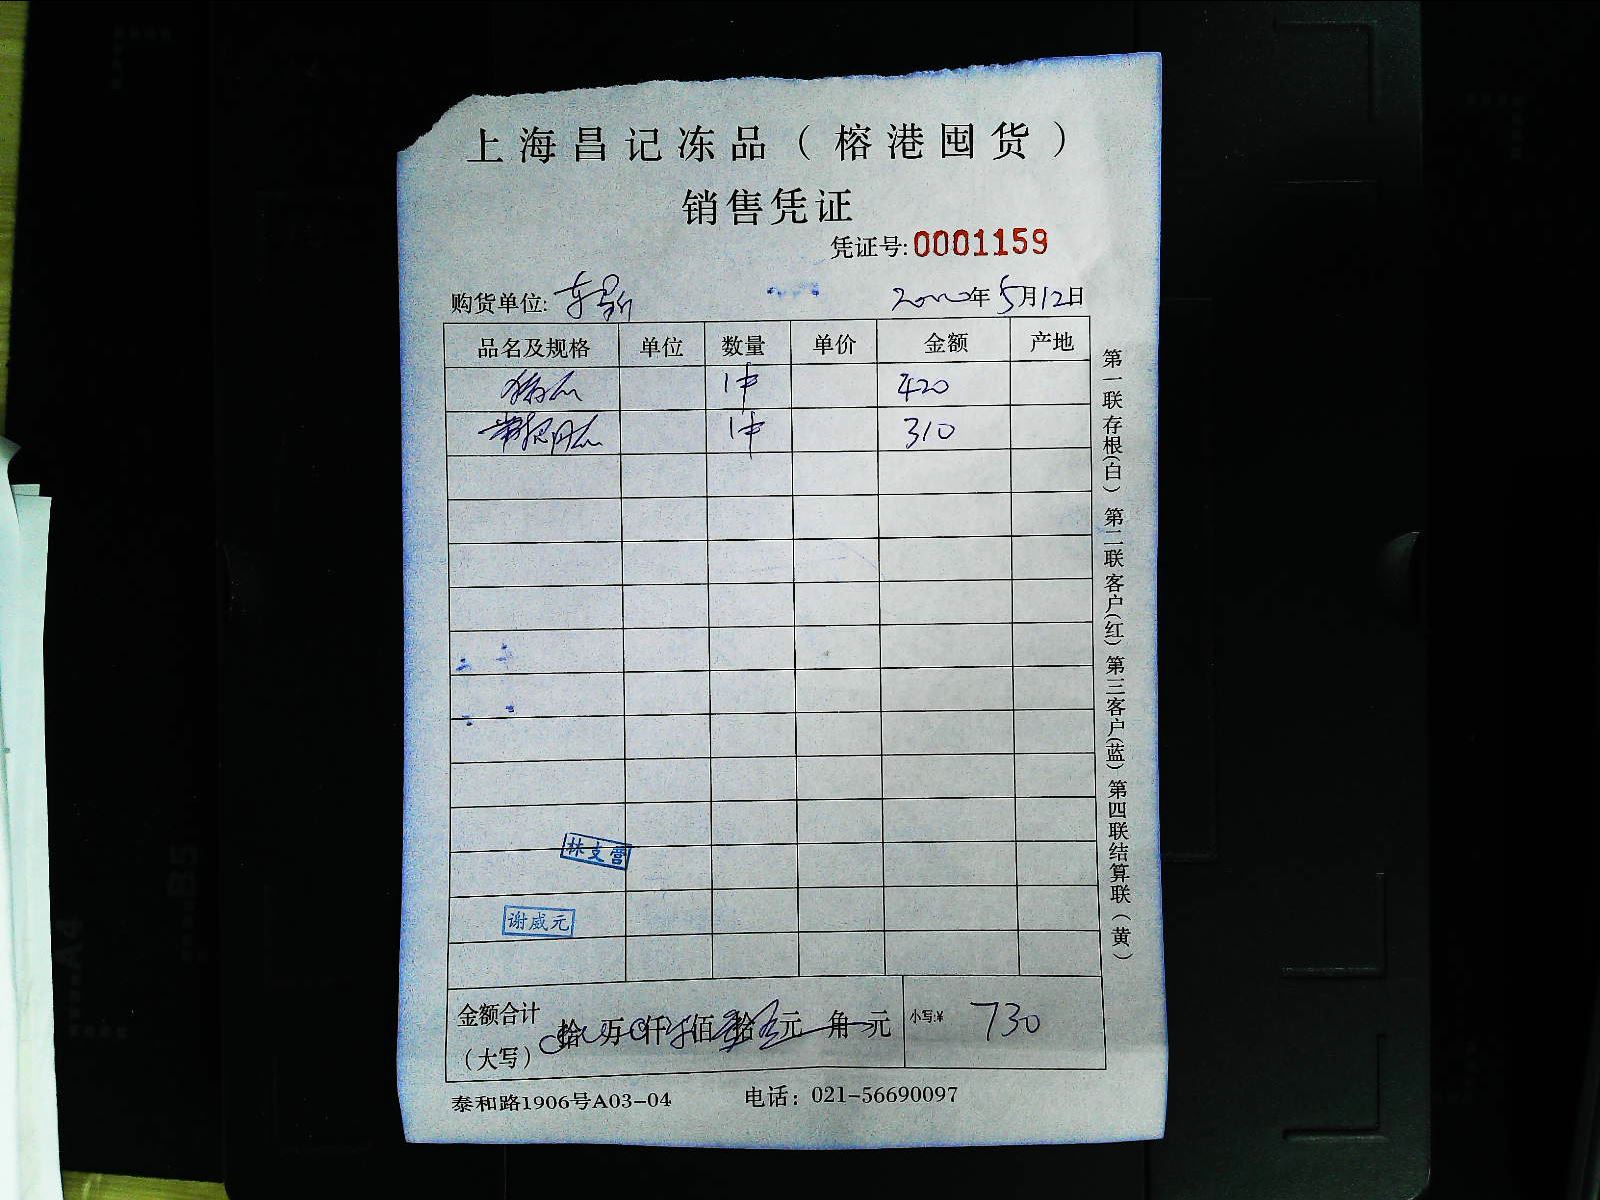 上海昌记冻品（榕港囤货）
销售凭证
凭证号:0001159
购货单位: 年5月12日
品名及规格 单位 数量 单价 金额 产地
1件 420
1件 310
林支营
谢威元
金额合计 拾 万 仟 佰 拾 元 角 元 小写:¥ 730
（大写）
泰和路1906号A03-04 电话：021-56690097
第一联存根(白) 第二联客户(红) 第三客户(蓝) 第四联结算联(黄)